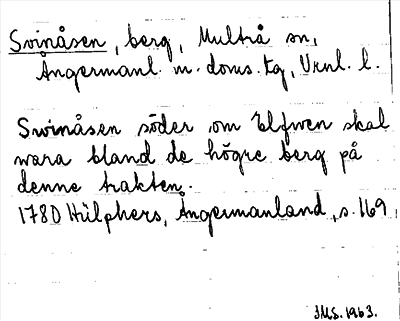 Svinåsen, berg, Multrå sn,
Ångermanl. m. doms. tg, Vnl. l.
Swinåsen söder om Elfwen skal
wara bland de högre berg på
denne trakten.
1780 Hülphers, Ångermanland, s. 169.
IMS. 1963.